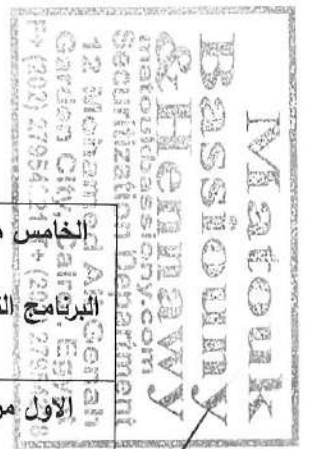 Matouk
Bassiouny
& Hennawy
matoukbassiouny.com
Securitization Department
12 Mohamed Ali Genah
Garden City, Cairo, Egypt
الخامس
البرنامج
الاول من